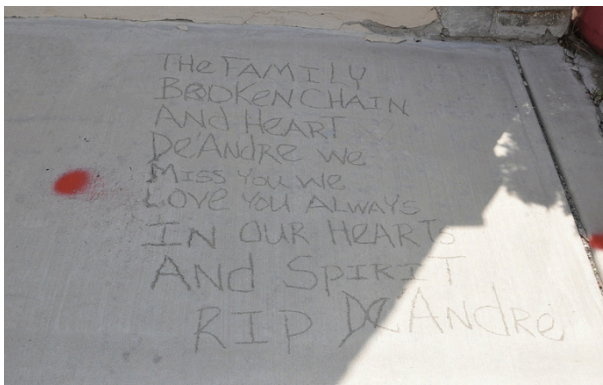 THe FAMILY
BROKEN CHAIN
AND HeART
DeANDRE We
MISS YOU We
LOVe YOU ALWAYS
IN OUR HeARTS
AND SPIRIT
RIP DeANdRe